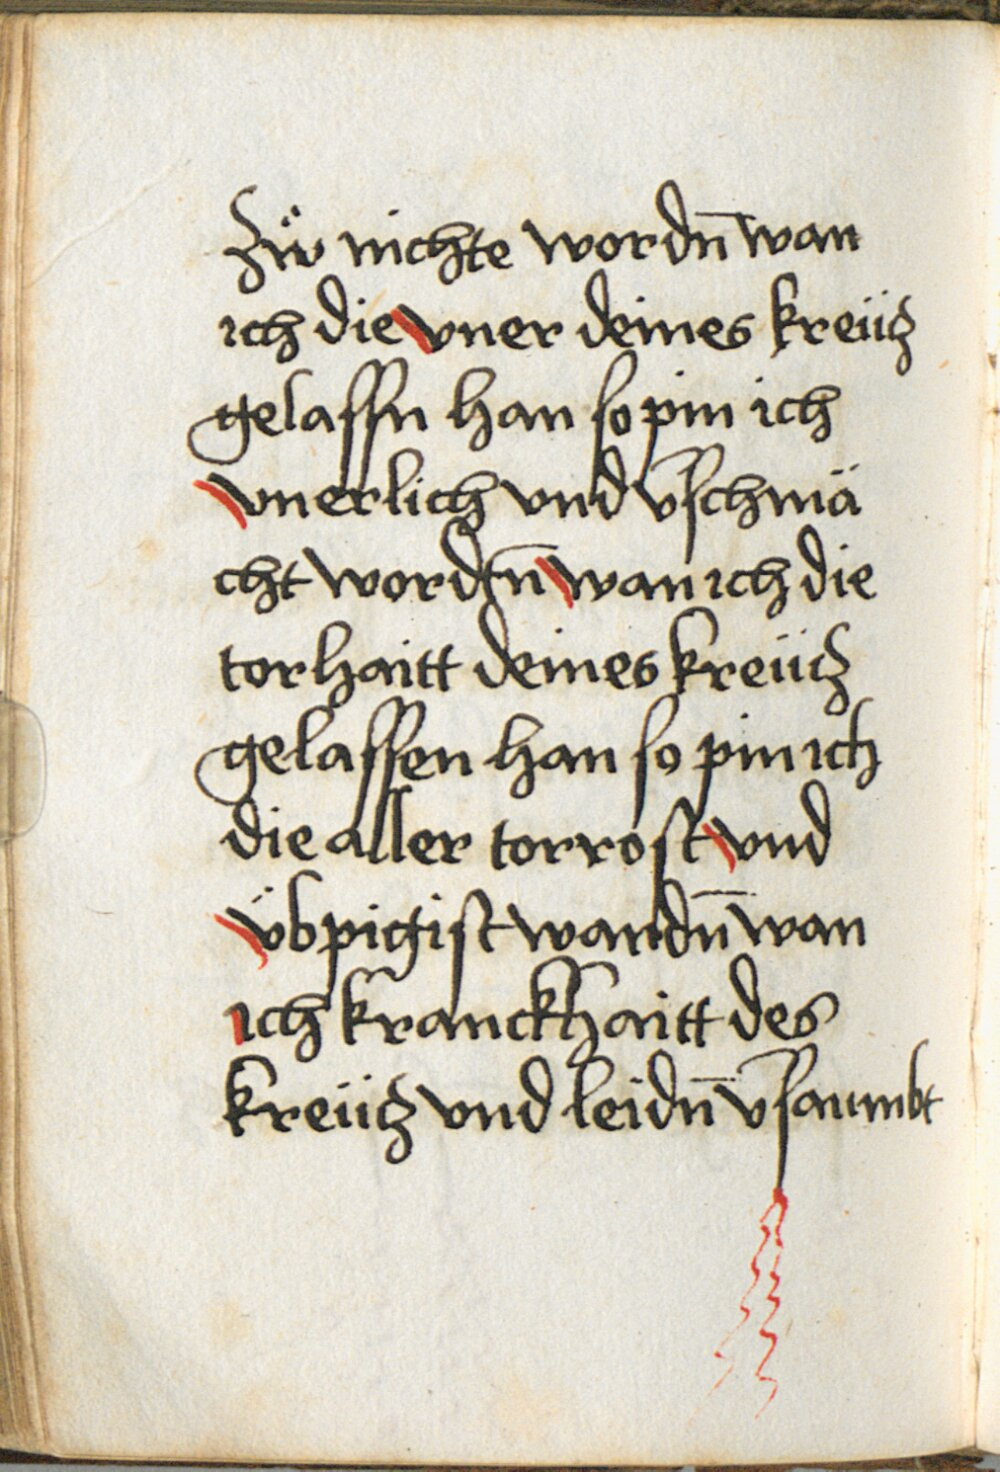 Züv nichte wordn̄ wan
ich die vner deines kreütz
gelassn han so pin ich
vnerlich vnd vschmä
cht wordēn̄ wan ich die
torhaitt deines kreütz
gelassen han so pin ich
die aller torrost vnd
übpigist wardn̄ wan
ich kranckhaitt des
kreütz vnd leidn̄ vsaumbt